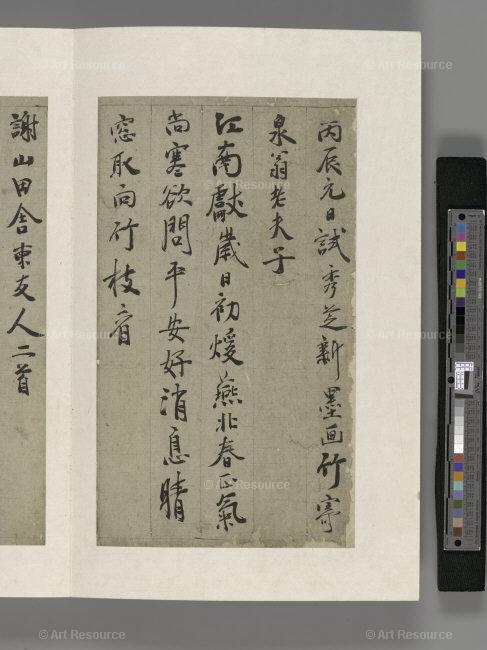 丙辰元日試秀芝新墨画竹寄
泉翁老夫子
江南獻歲日初煖燕北春正氣
尚寒欲問平安好消息晴
窓取向竹枝看
謝山田舍柬友人二首
© Art Resource
© Art Resource
© Art Resource
© Art Resource
© Art Resource
© Art Resource
© Art Resource
© Art Resource
© Art Resource